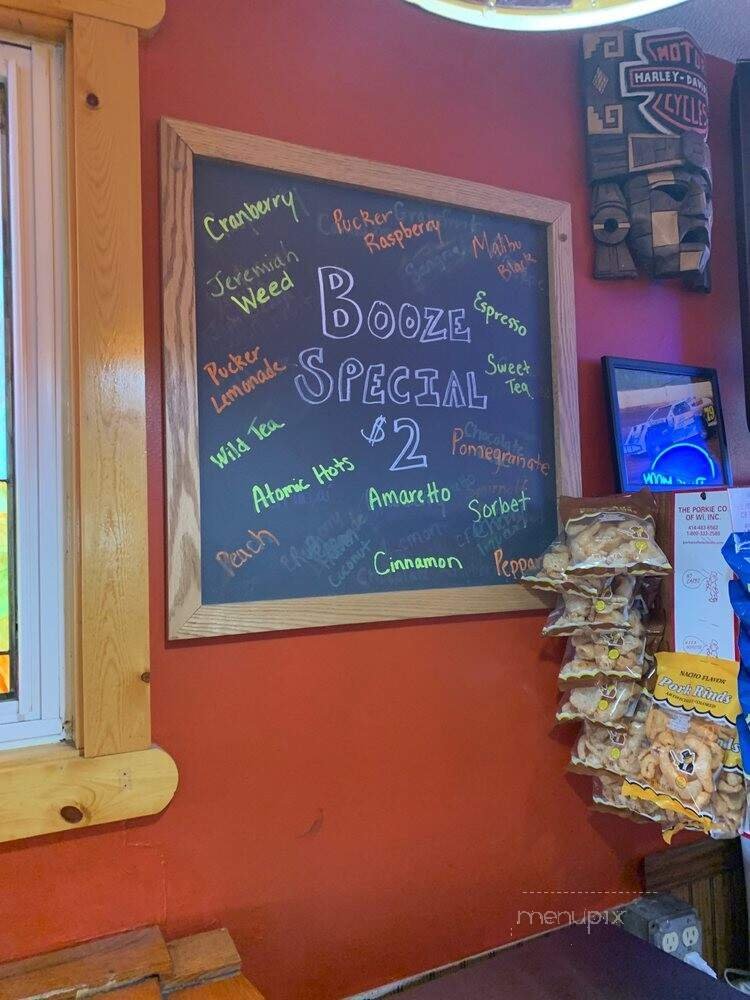 MOTOR
HARLEY-DAVI
CYCLES
Cranberry
Pucker
Raspberry
Malibu
Black
Jeremiah
Weed
BOOZE
SPECIAL
$2
Espresso
Sweet
Tea
Pucker
Lemonade
Wild Tea
Chocolate
Pomegranate
Atomic Hots
Amaretto
Sorbet
Peach
Cinnamon
Peppar
THE PORKIE CO.
OF WI, INC.
NACHO FLAVOR
Pork Rinds
menupix